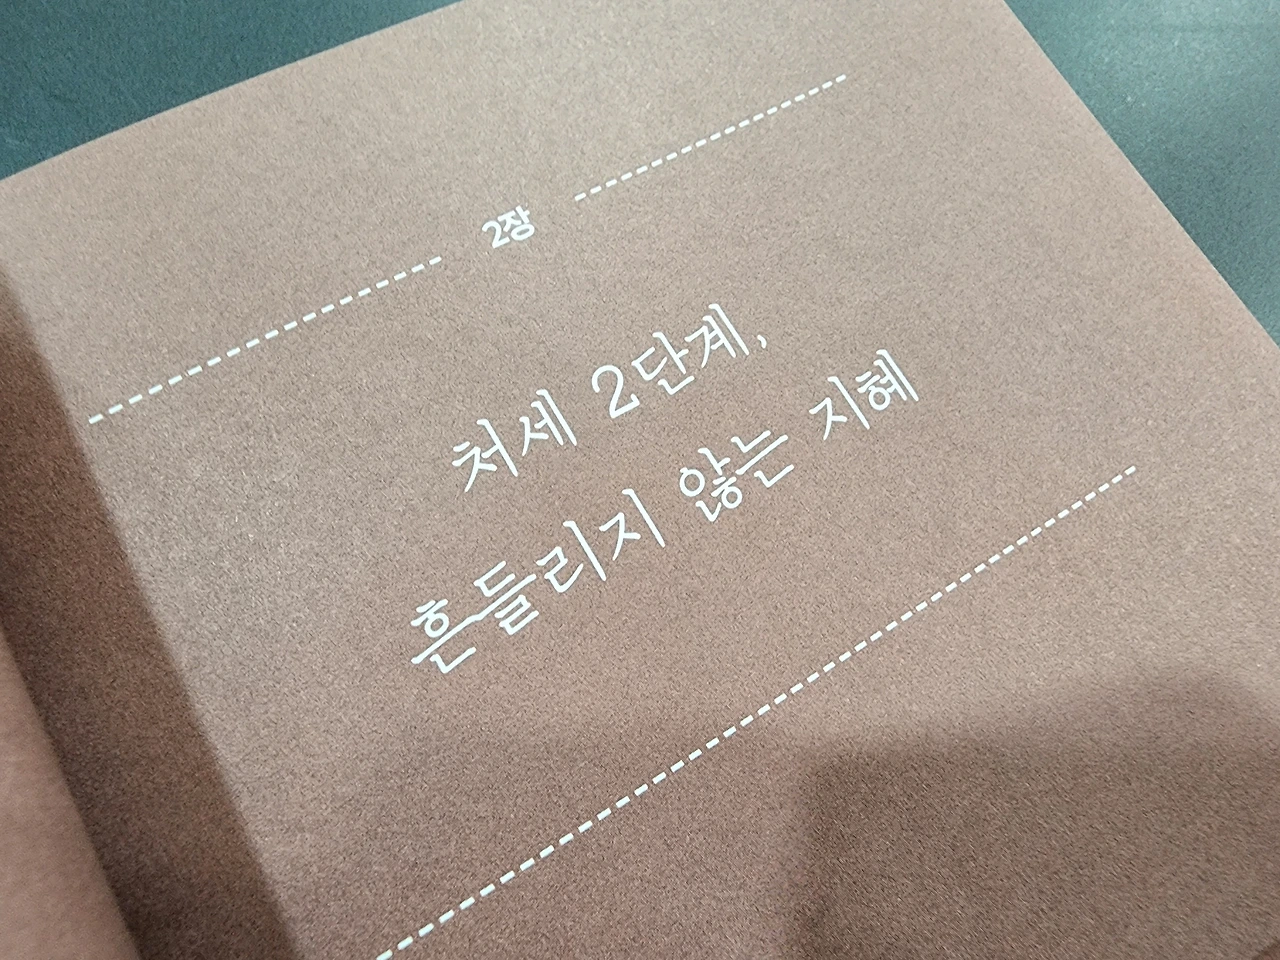 2장
처세 2단계,
흔들리지 않는 지혜